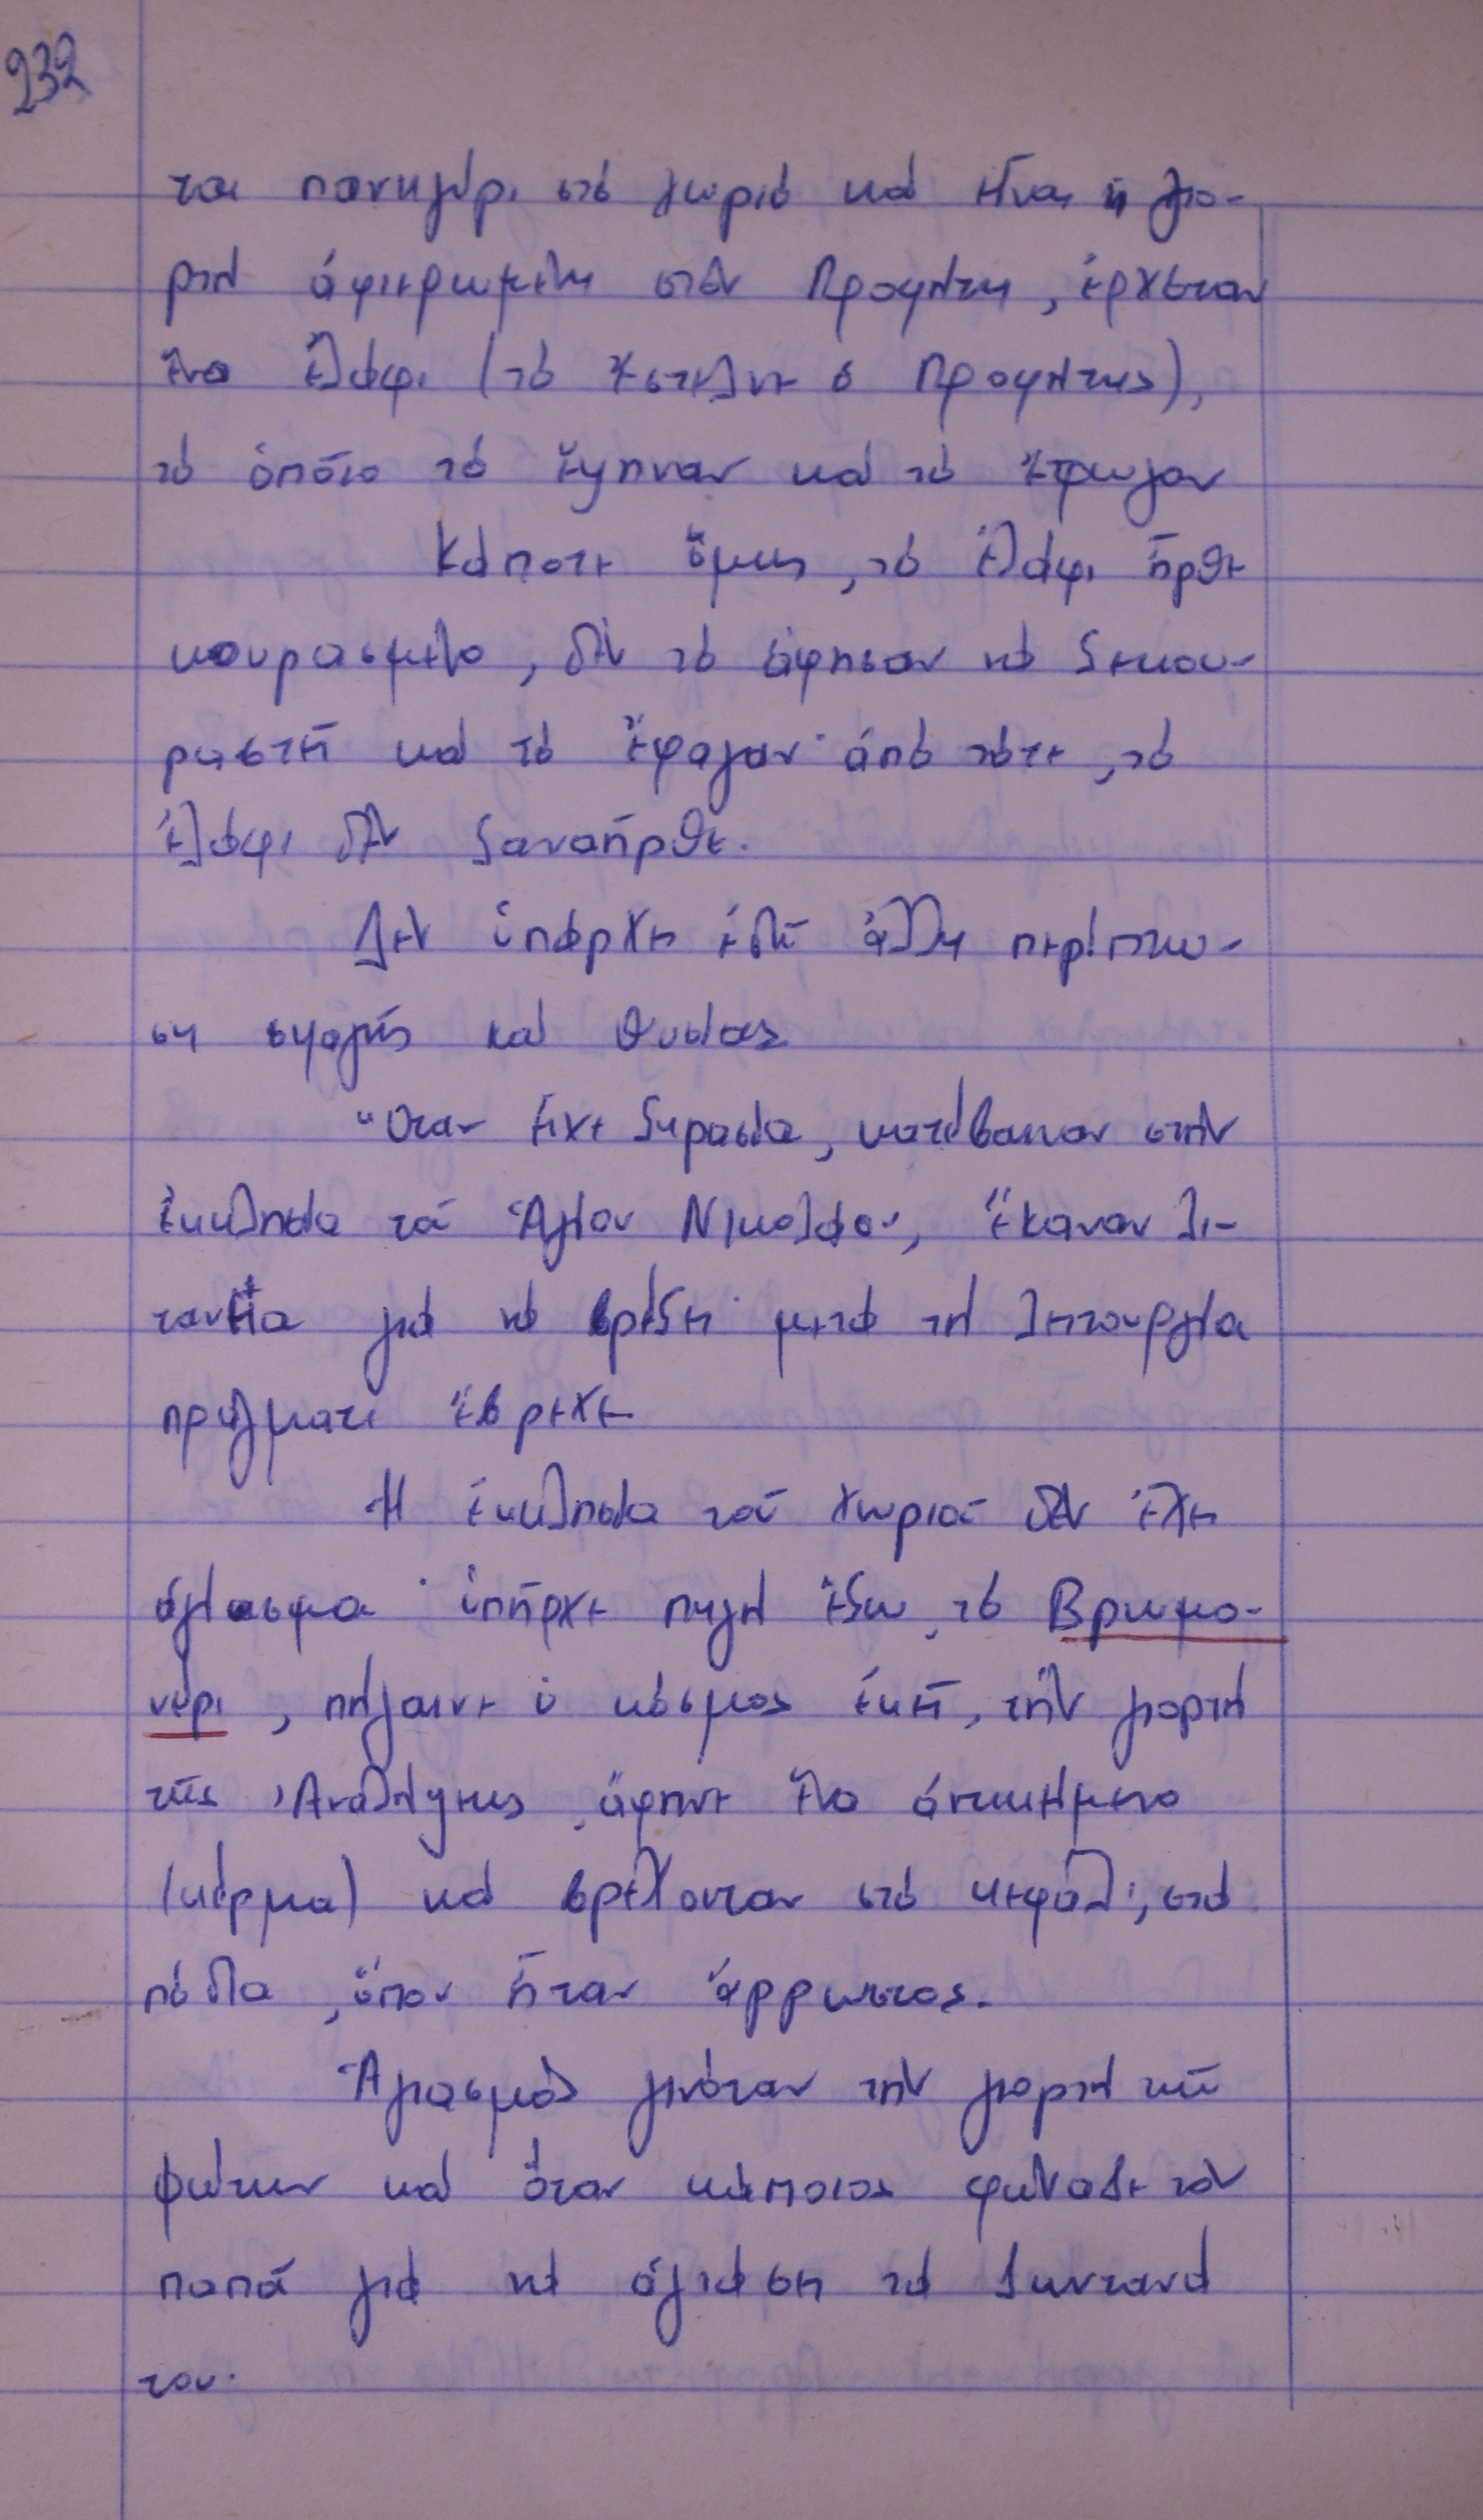 232
ται πανηγύρι στό χωριό καί εἶναι ἡ γιο-
ρτή ἀφιερωμένη στόν Προφήτη, ἐρχόταν
ἕνα ἐλάφι (τό ἔστελνε ὁ Προφήτης),
τό ὁποῖο τό ἔψηναν καί τό ἔτρωγαν
Κάποτε ὅμως, τό ἐλάφι ἦρθε
κουρασμένο, δέν τό ἄφησαν νά ξεκου-
ραστῆ καί τό ἔφαγαν· ἀπό τότε, τό
ἐλάφι δέν ξαναῆρθε.
Δέν ὑπάρχει ἐδῶ ἄλλη περίπτω-
ση σφαγῆς καί θυσίας
Ὅταν εἶχε ξηρασία, κατέβαιναν στήν
ἐκκλησία τοῦ Ἁγίου Νικολάου, ἔκαναν λι-
τανεία γιά νά βρέξει· μετά τή λειτουργία
πράγματι ἔβρεχε
Ἡ ἐκκλησία τοῦ χωριοῦ δέν ἔχει
ἁγίασμα· ὑπῆρχε πηγή ἔξω, τό Βρωμο-
νέρι, πήγαινε ὁ κόσμος ἐκεῖ, τήν γιορτή
τῆς Ἀναλήψεως, ἄφηνε ἕνα ἀντικείμενο
(κέρμα) καί βρέχονταν στό κεφάλι, στά
πόδια, ὅπου ἦταν ἄρρωστος.
Ἁγιασμός γινόταν τήν γιορτή τῶν
φώτων καί ὅταν κάποιος φώναζε τόν
παπά γιά νά ἁγιάσει τά ζωντανά
του.